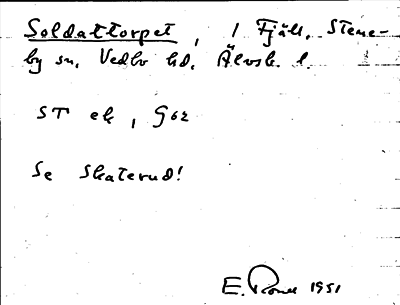 Soldattorpet, 1 Fjäll, Stene-
by sn, Vedbo hd, Älvsb. l.
ST ek, G 62
Se Skaterud!
E. 1951